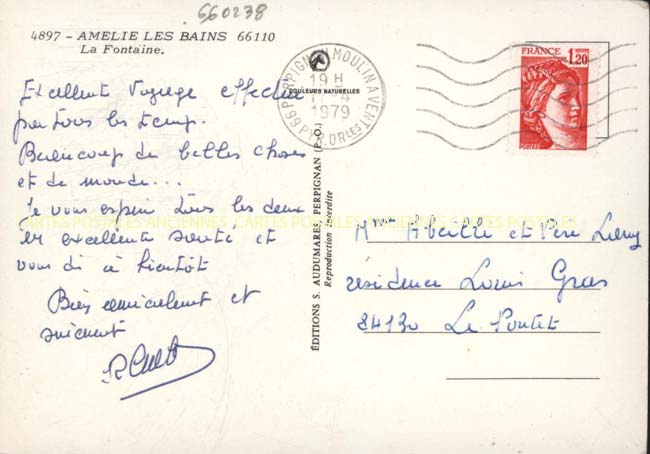 660238
4897 - AMELIE LES BAINS 66110
La Fontaine.
Excellent Voyage effectué
par tous les temps.
Beaucoup de belles choses
et de monde...
Je vous espère tous les deux
en excellente santé, et
vous dis à bientôt
Bien amicalement et
ÉDITIONS S. AUDUMARES, PERPIGNAN (P.-O.)
Reproduction interdite
COULEURS NATURELLES
66 PERPIGNAN MOULIN A VENT
19 H
1979
PYR. OR LES
FRANCE 1,20
POSTES
CARTES POSTALES ANCIENNES, CARTES POSTALES ANCIENNES, CARTES POSTALES
Mme Abeille et Père
résidence Louis Gras
84130 Le Pontet